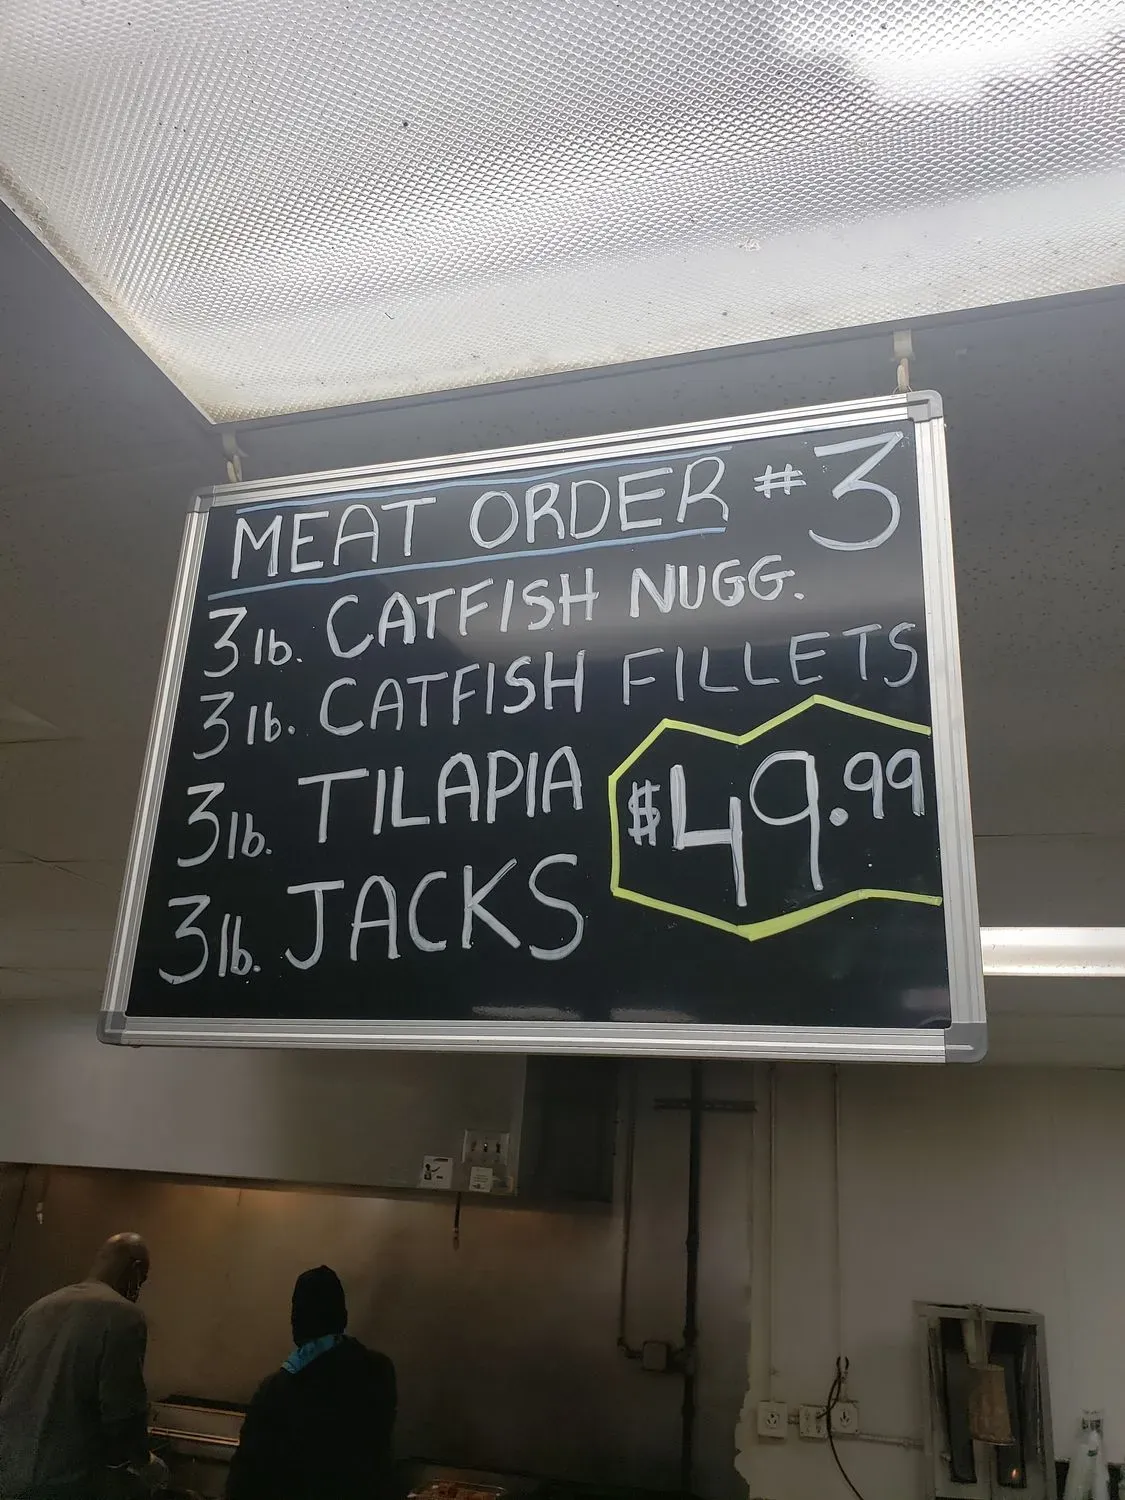 MEAT ORDER #3
3 lb. CATFISH NUGG.
3 lb. CATFISH FILLETS
3 lb. TILAPIA
$49.99
3 lb. JACKS